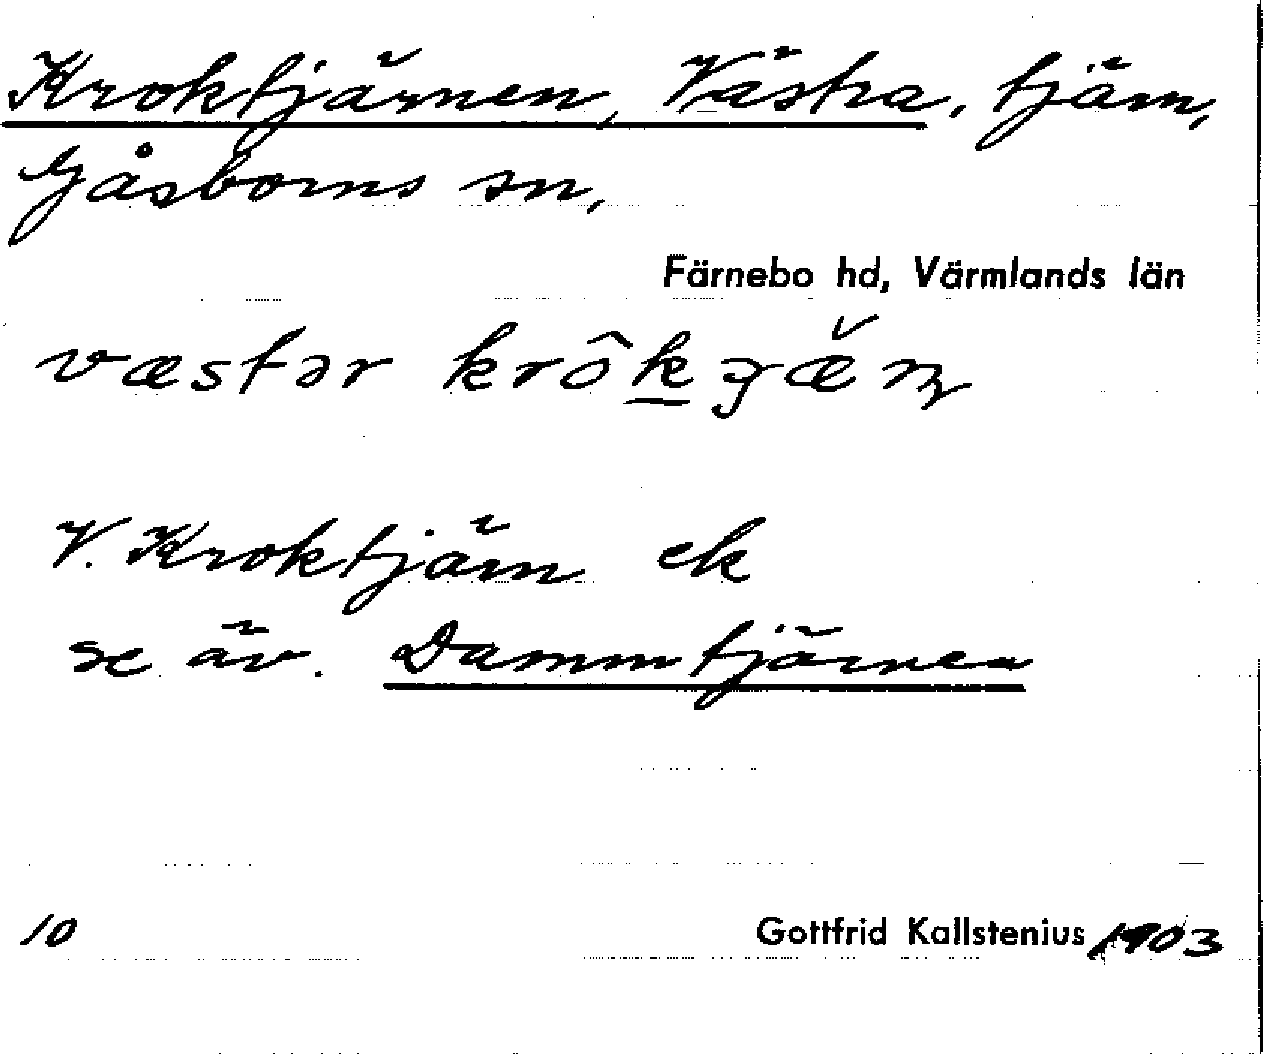 Kroktjärnen, Västra, tjärn,
Gåsborns sn,
Färnebo hd, Värmlands län
væstər krôkʒæ̆ɳ
V. Kroktjärn ek
se äv. Dammtjärnen
10
Gottfrid Kallstenius 1903